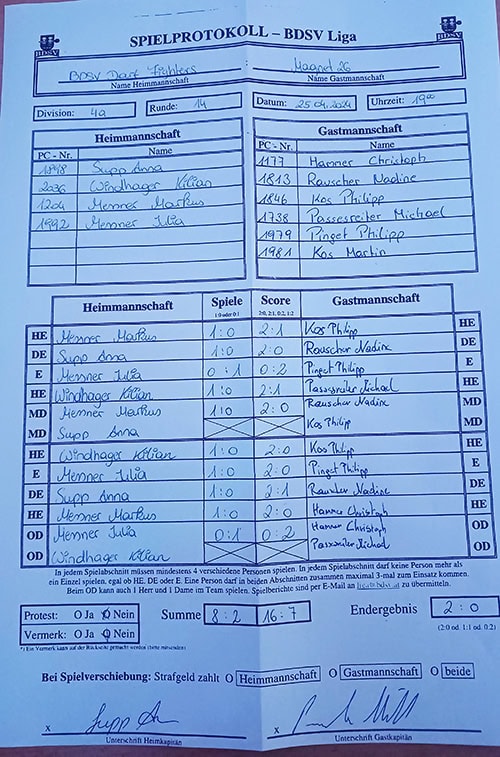 SPIELPROTOKOLL – BDSV Liga
BDSV BDSV
BDSV Dart Fighters Magnet 26
Name Heimmannschaft Name Gastmannschaft
Division: 4a Runde: 14 Datum: 25.04.2024 Uhrzeit: 19:00
Heimmannschaft Gastmannschaft
PC - Nr. Name PC - Nr. Name
1898 Supp Anna 1177 Hanner Christoph
2036 Windhager Kilian 1813 Rauscher Nadine
1204 Menner Markus 1846 Kos Philipp
1992 Menner Julia 1738 Passesreiter Michael
1979 Pinget Philipp
1981 Kos Martin
Heimmannschaft Spiele Score Gastmannschaft
1:0 oder 0:1 2:0, 2:1, 0:2, 1:2
HE Menner Markus 1:0 2:1 Kos Philipp HE
DE Supp Anna 1:0 2:0 Rauscher Nadine DE
E Menner Julia 0:1 0:2 Pinget Philipp E
HE Windhager Kilian 1:0 2:1 Passesreiter Michael HE
MD Menner Markus 1:0 2:0 Rauscher Nadine MD
MD Supp Anna Kos Philipp MD
HE Windhager Kilian 1:0 2:0 Kos Philipp HE
E Menner Julia 1:0 2:0 Pinget Philipp E
DE Supp Anna 1:0 2:1 Rauscher Nadine DE
HE Menner Markus 1:0 2:0 Hanner Christoph HE
OD Menner Julia 0:1 0:2 Hanner Christoph OD
OD Windhager Kilian Michael OD
In jedem Spielabschnitt müssen mindestens 4 verschiedene Personen spielen. In jedem Spielabschnitt darf keine Person mehr als
ein Einzel spielen, egal ob HE, DE oder E. Eine Person darf in beiden Abschnitten zusammen maximal 3-mal zum Einsatz kommen.
Beim OD kann auch 1 Herr und 1 Dame im Team spielen. Spielberichte sind per E-Mail an zu übermitteln.
Protest: O Ja O Nein Summe 8:2 16:7 Endergebnis 2:0
Vermerk: O Ja O Nein (2:0 od. 1:1 od. 0:2)
*) Ein Vermerk kann auf der Rückseite gemacht werden (bitte mitsenden)
Bei Spielverschiebung: Strafgeld zahlt O Heimmannschaft O Gastmannschaft O beide
x Supp x
Unterschrift Heimkapitän Unterschrift Gastkapitän